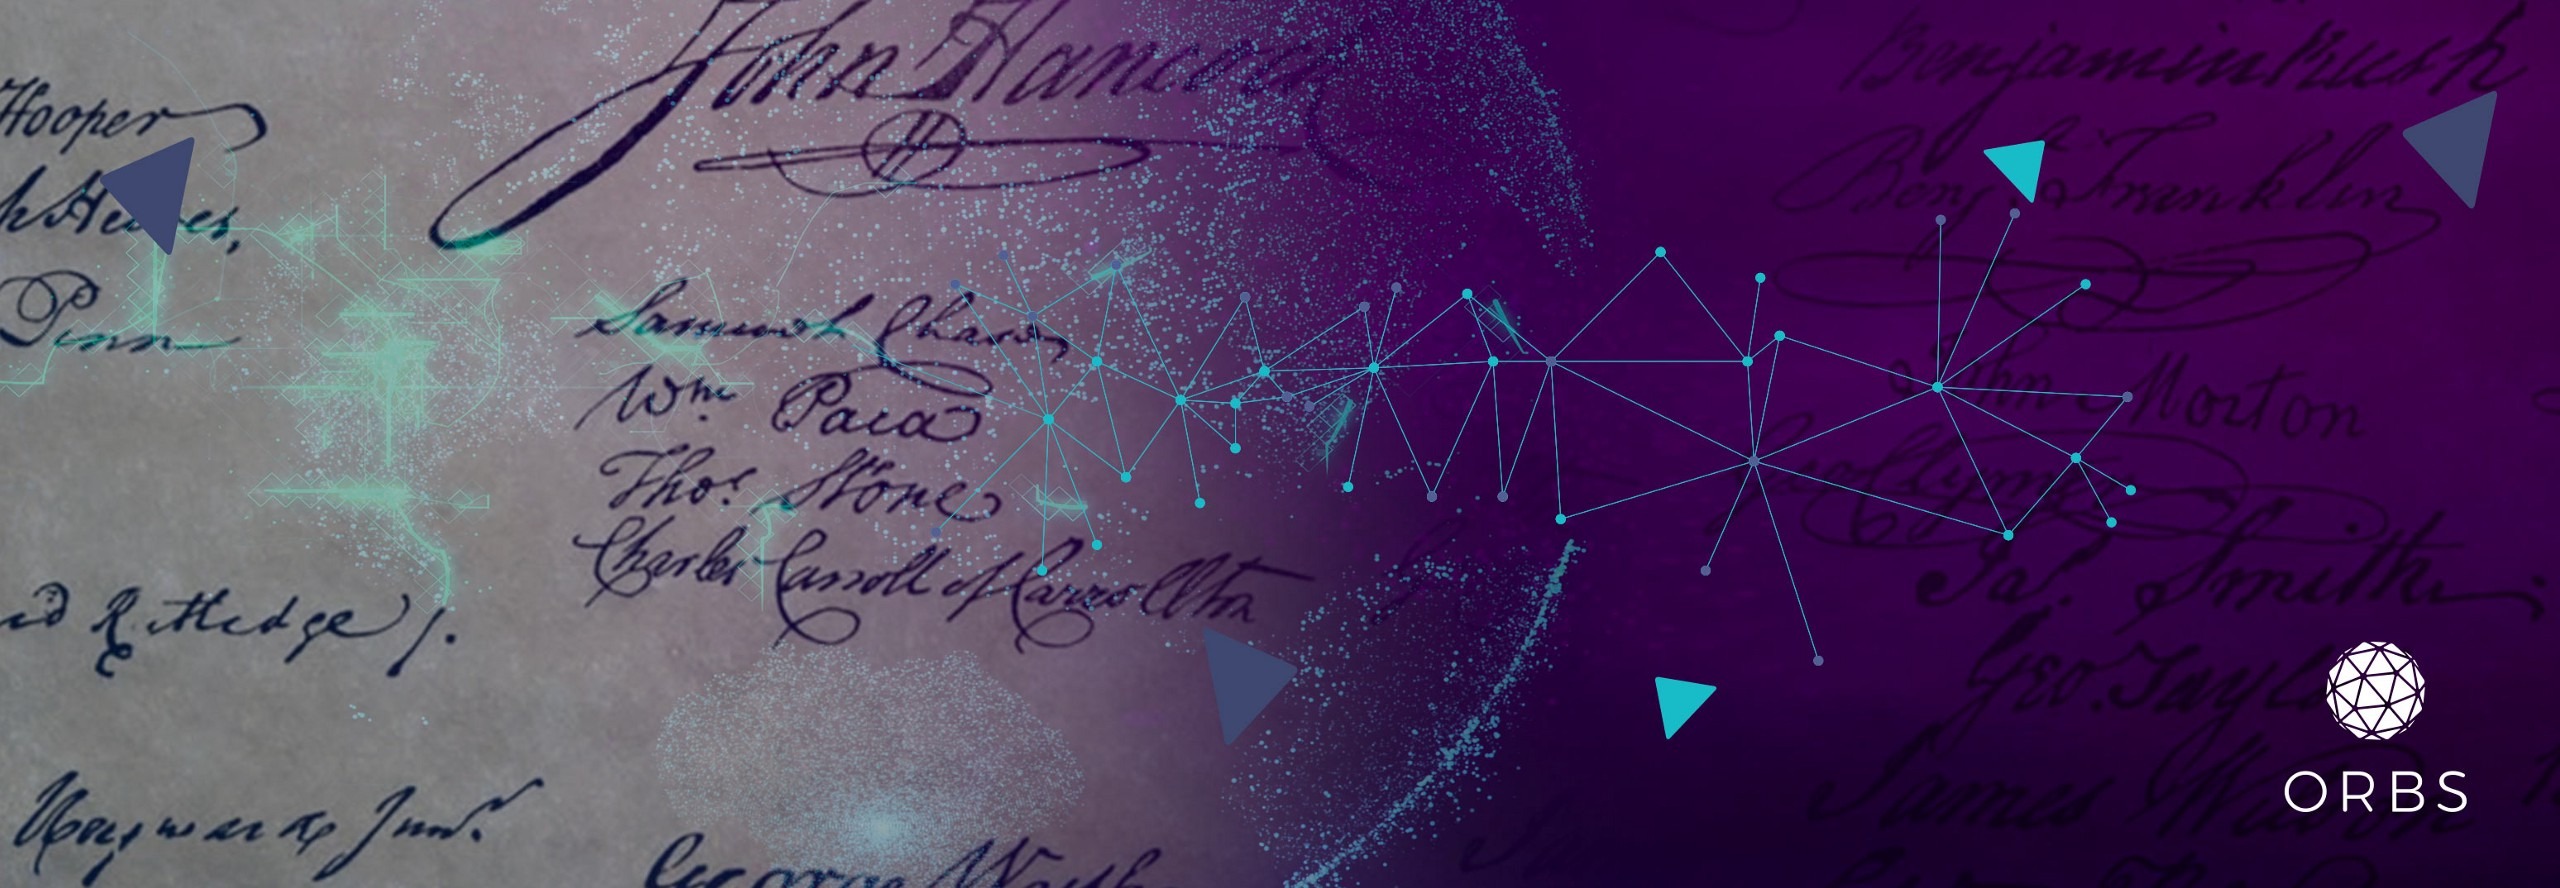 Hooper
Hewes,
Penn
Rutledge J.
Heyward Junr.
John Hancock
Samuel Chase
Wm. Paca
Thos. Stone
Charles Carroll of Carrollton
George
Benjamin Rush
Benj. Franklin
John Morton
Geo Clymer
Jas. Smith
Geo. Taylor
James Wilson
ORBS